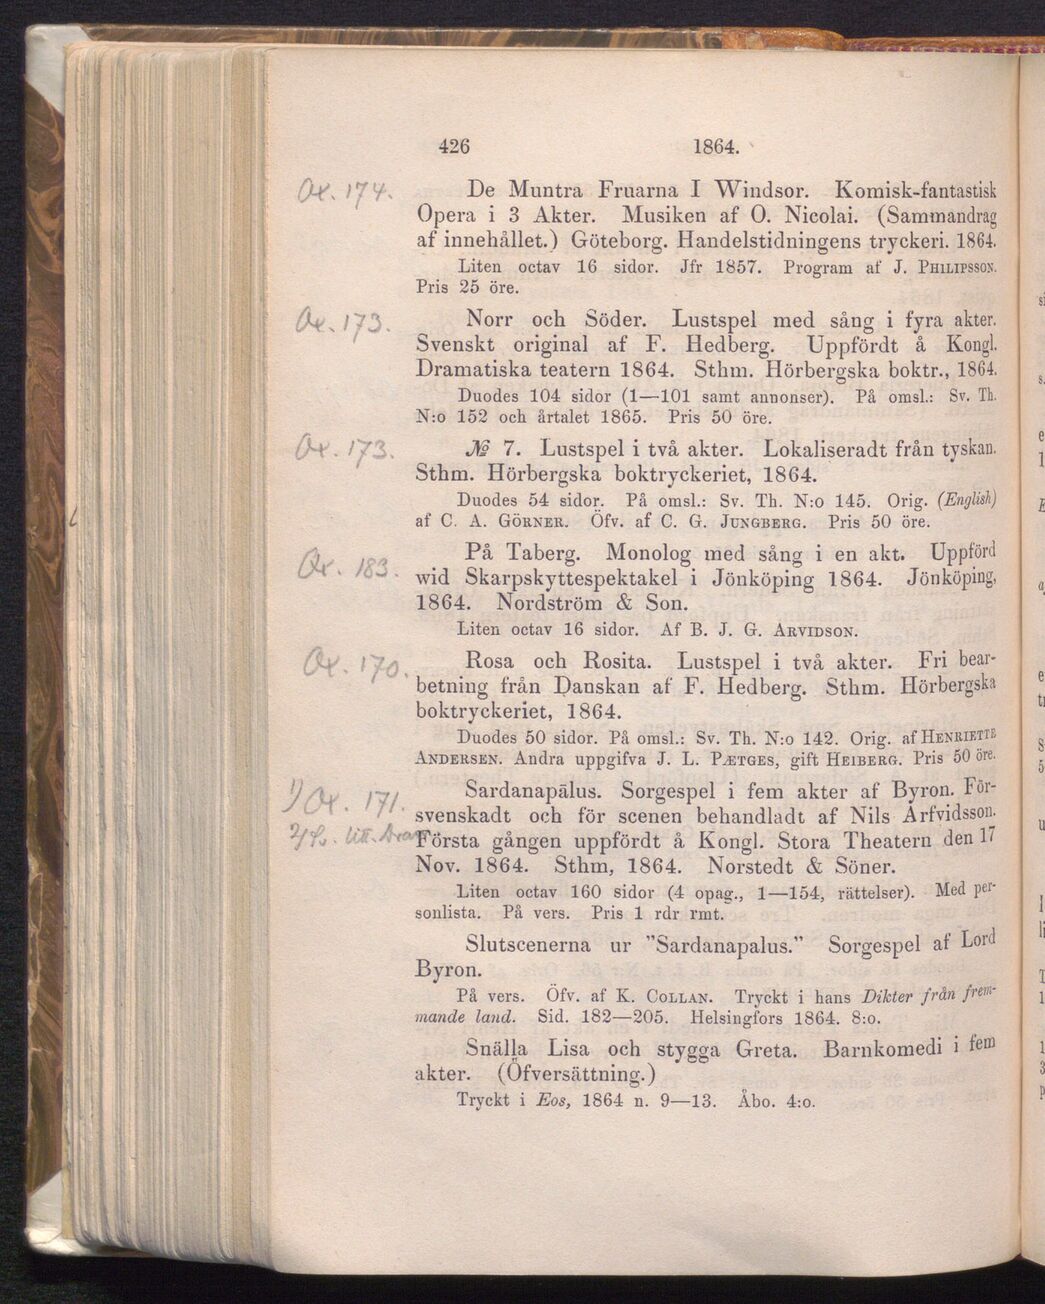 426 1864.
Ox. 174. De Muntra Fruarna I Windsor. Komisk-fantastisk
Opera i 3 Akter. Musiken af O. Nicolai. (Sammandrag
af innehållet.) Göteborg. Handelstidningens tryckeri. 1864.
Liten octav 16 sidor. Jfr 1857. Program af J. Philipsson.
Pris 25 öre.
Ox. 173. Norr och Söder. Lustspel med sång i fyra akter.
Svenskt original af F. Hedberg. Uppfördt å Kongl.
Dramatiska teatern 1864. Sthm. Hörbergska boktr., 1864.
Duodes 104 sidor (1—101 samt annonser). På omsl.: Sv. Th.
N:o 152 och årtalet 1865. Pris 50 öre.
Ox. 173. № 7. Lustspel i två akter. Lokaliseradt från tyskan.
Sthm. Hörbergska boktryckeriet, 1864.
Duodes 54 sidor. På omsl.: Sv. Th. N:o 145. Orig. (English)
af C. A. Görner. Öfv. af C. G. Jungberg. Pris 50 öre.
På Taberg. Monolog med sång i en akt. Uppförd
Ox. 183. wid Skarpskyttespektakel i Jönköping 1864. Jönköping,
1864. Nordström & Son.
Liten octav 16 sidor. Af B. J. G. Arvidson.
Ox. 170. Rosa och Rosita. Lustspel i två akter. Fri bear-
betning från Danskan af F. Hedberg. Sthm. Hörbergska
boktryckeriet, 1864.
Duodes 50 sidor. På omsl.: Sv. Th. N:o 142. Orig. af Henriette
Andersen. Andra uppgifva J. L. Pætges, gift Heiberg. Pris 50 öre.
1) Ox. 171. Sardanapälus. Sorgespel i fem akter af Byron. För-
svenskadt och för scenen behandladt af Nils Arfvidsson.
2) litt. Dram Första gången uppfördt å Kongl. Stora Theatern den 17
Nov. 1864. Sthm, 1864. Norstedt & Söner.
Liten octav 160 sidor (4 opag., 1—154, rättelser). Med per-
sonlista. På vers. Pris 1 rdr rmt.
Slutscenerna ur ”Sardanapalus.” Sorgespel af Lord
Byron.
På vers. Öfv. af K. Collan. Tryckt i hans Dikter från frem-
mande land. Sid. 182—205. Helsingfors 1864. 8:o.
Snälla Lisa och stygga Greta. Barnkomedi i fem
akter. (Öfversättning.)
Tryckt i Eos, 1864 n. 9—13. Åbo. 4:o.